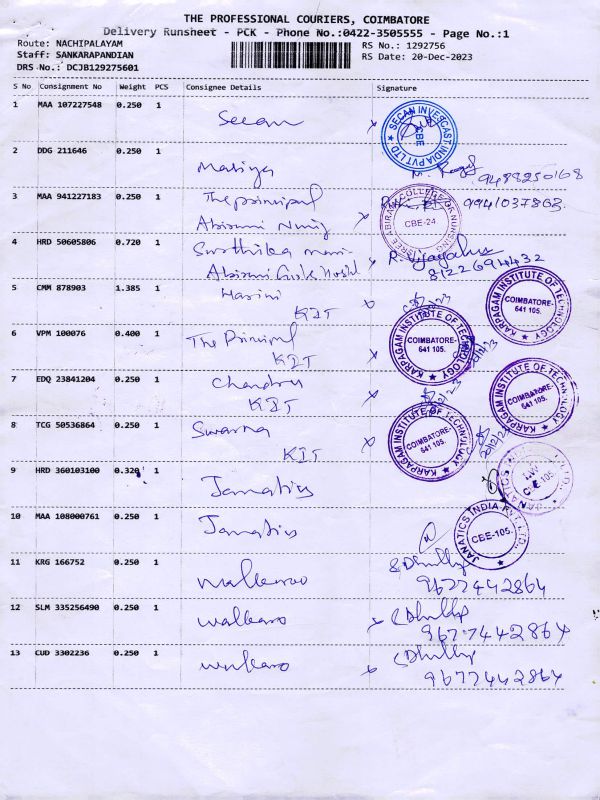 THE PROFESSIONAL COURIERS, COIMBATORE
Delivery Runsheet - PCK - Phone No.:0422-3505555 - Page No.:1
Route: NACHIPALAYAM
Staff: SANKARAPANDIAN
DRS No.: DCJB129275601
RS No.: 1292756
RS Date: 20-Dec-2023
S No Consignment No Weight PCS Consignee Details Signature
1 MAA 107227548 0.250 1 Secan
SECAN INVESCAST INDIA PVT LTD CBE
2 DDG 211646 0.250 1
9488250168
3 MAA 941227183 0.250 1 The principal
9941037863
Abirami Nursing
SREE ABIRAMI COLLEGE OF NURSING CBE-24
4 HRD 50605806 0.720 1
R. Vijayalaxmi
Abirami Girls Hostel
8122694432
5 CMM 878903 1.385 1 Harini
KIT
KARPAGAM INSTITUTE OF TECHNOLOGY COIMBATORE- 641 105.
6 VPM 100076 0.400 1 The Principal
KIT
KARPAGAM INSTITUTE OF TECHNOLOGY COIMBATORE- 641 105.
7 EDQ 23841204 0.250 1 Chandru
KIT
KARPAGAM INSTITUTE OF TECHNOLOGY COIMBATORE- 641 105.
8 TCG 50536864 0.250 1 Swarna
KIT
KARPAGAM INSTITUTE OF TECHNOLOGY COIMBATORE- 641 105.
9 HRD 360103100 0.320 1 Janatics
JANATICS CBE-105
10 MAA 108000761 0.250 1 Janatics
JANATICS INDIA PVT. LTD., CBE-105.
11 KRG 166752 0.250 1 walkaroo
9677442864
12 SLM 335256490 0.250 1 walkaroo
9677442864
13 CUD 3302236 0.250 1 walkaroo
9677442864